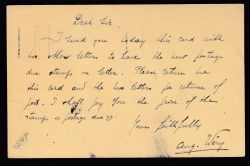 Dear Sir.
I send you today this card with
two other letters to have the new postage
due stamps on letter. Please return me
this card and the two letters per return of
post. I shall pay you the price of the
stamps & postage due.
Yours faithfully
Aug.